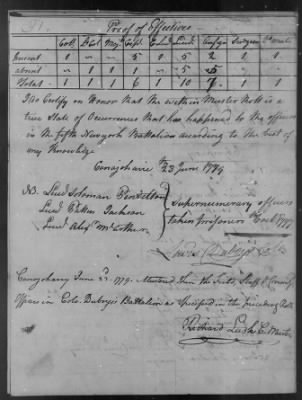 Proof of Effectives
Col. L Col. Maj. Capt. Lieut. Ensign Surgeon
Present 1 ~ ~ 5 1 5 2 1 1
absent ~ 1 1 1 ~ 5 5 ~ ~
Total 1 1 1 6 1 10 7 1 1
I do Certify on Honor that the within Muster Roll is a
true State of Occurences that has happened to the officers
in the fifth Newyork Battalion according to the best of
my Knowledge
Canajoharie 23 June 1779
NB. Lieut Soloman Pendelton
Lieut Patten Jackson
Lieut Alexr McArthur
Supernumerary officers
taken prisoners 6 Oct 1777
Lewis Dubois Col.
Canajohary June 23. 1779. Mustered then the Field, Staff &
Officers in Colo. Duboys Battalion as Specified in the foregoing Roll
Richard Lush